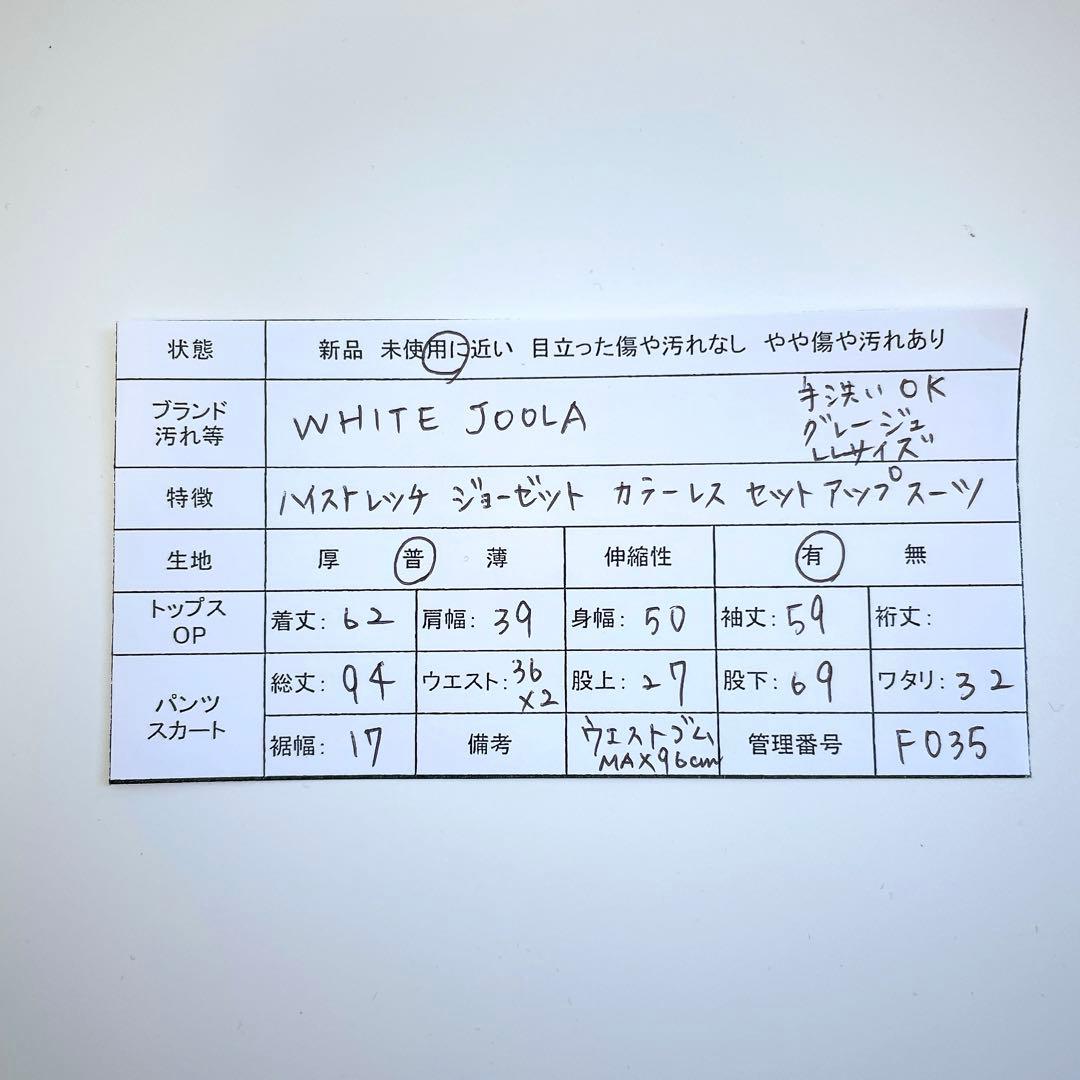 状態 新品 未使用に近い 目立った傷や汚れなし やや傷や汚れあり
ブランド
汚れ等
WHITE JOOLA
手洗い OK
グレージュ
LLサイズ
特徴 ハイストレッチ ジョーゼット カラーレス セットアップスーツ
生地 厚 普 薄 伸縮性 有 無
トップス
OP
着丈: 62 肩幅: 39 身幅: 50 袖丈: 59 裄丈:
パンツ
スカート
総丈: 94 ウエスト: 36
×2
股上: 27 股下: 69 ワタリ: 32
裾幅: 17 備考 ウエストゴム
MAX96cm
管理番号 F035